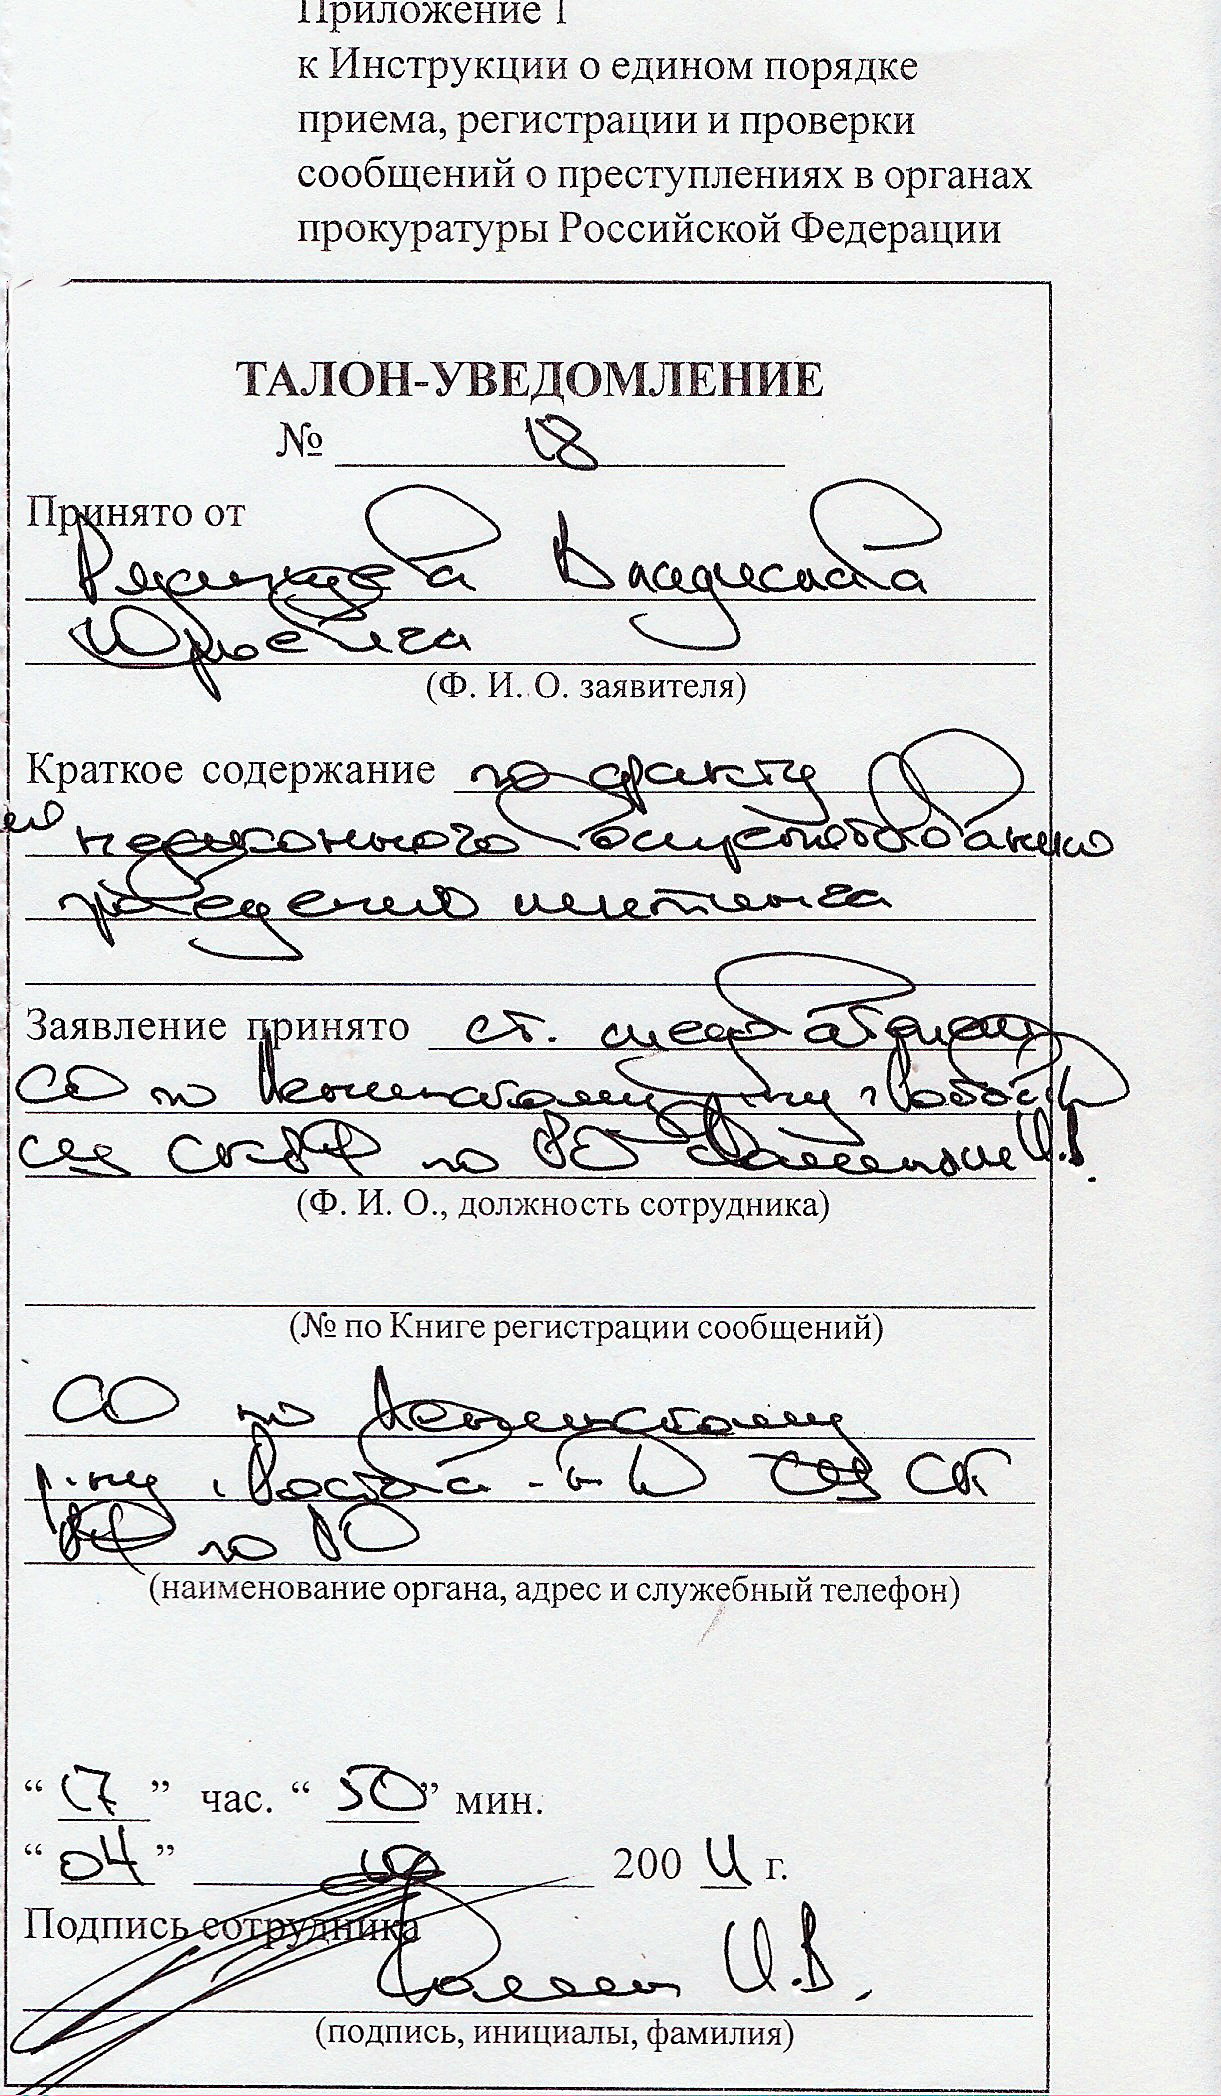 Приложение 1
к Инструкции о едином порядке
приема, регистрации и проверки
сообщений о преступлениях в органах
прокуратуры Российской Федерации
ТАЛОН-УВЕДОМЛЕНИЕ
№ 18
Принято от
Владислава
Юрьевича
(Ф. И. О. заявителя)
Краткое содержание по факту
незаконного воспрепятствования
проведению митинга
Заявление принято ст. следователем
СО по Ленинскому р-ну г. Ростов
СУ СК РФ по РО И.В.
(Ф. И. О., должность сотрудника)
(№ по Книге регистрации сообщений)
СО по Ленинскому
р-ну г. Ростов-н-Д СУ СК
РФ по РО
(наименование органа, адрес и служебный телефон)
“ 17 ” час. “ 50 ” мин.
“ 04 ” 200 г.
Подпись сотрудника
И.В.
(подпись, инициалы, фамилия)